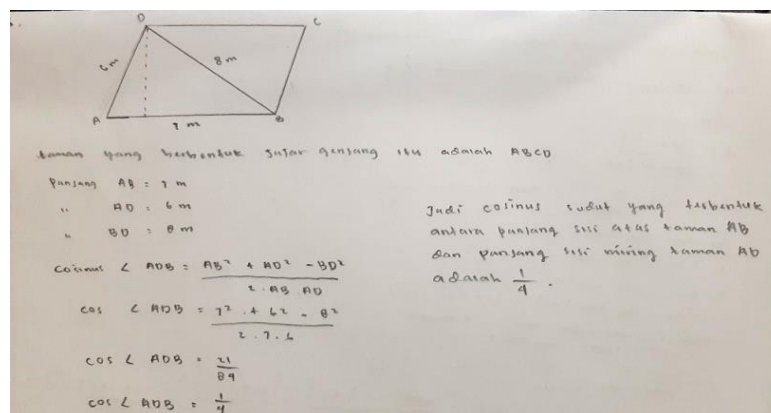 D
C
6 m
8 m
A
7 m
B
taman yang berbentuk jajar genjang itu adalah ABCD
Panjang AB = 7 m
" AD = 6 m
" BD = 8 m
Cosinus ∠ ADB = AB² + AD² - BD²
2 . AB . AD
cos ∠ ADB = 7² + 6² - 8²
2 . 7 . 6
cos ∠ ADB = 21
84
cos ∠ ADB = 1
4
Jadi cosinus sudut yang terbentuk
antara panjang sisi atas taman AB
dan panjang sisi miring taman AD
adalah 1/4 .